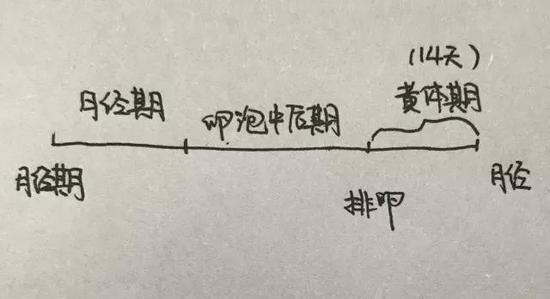 (14天)
黄体期
月经期
卵泡中后期
月经期
排卵
月经